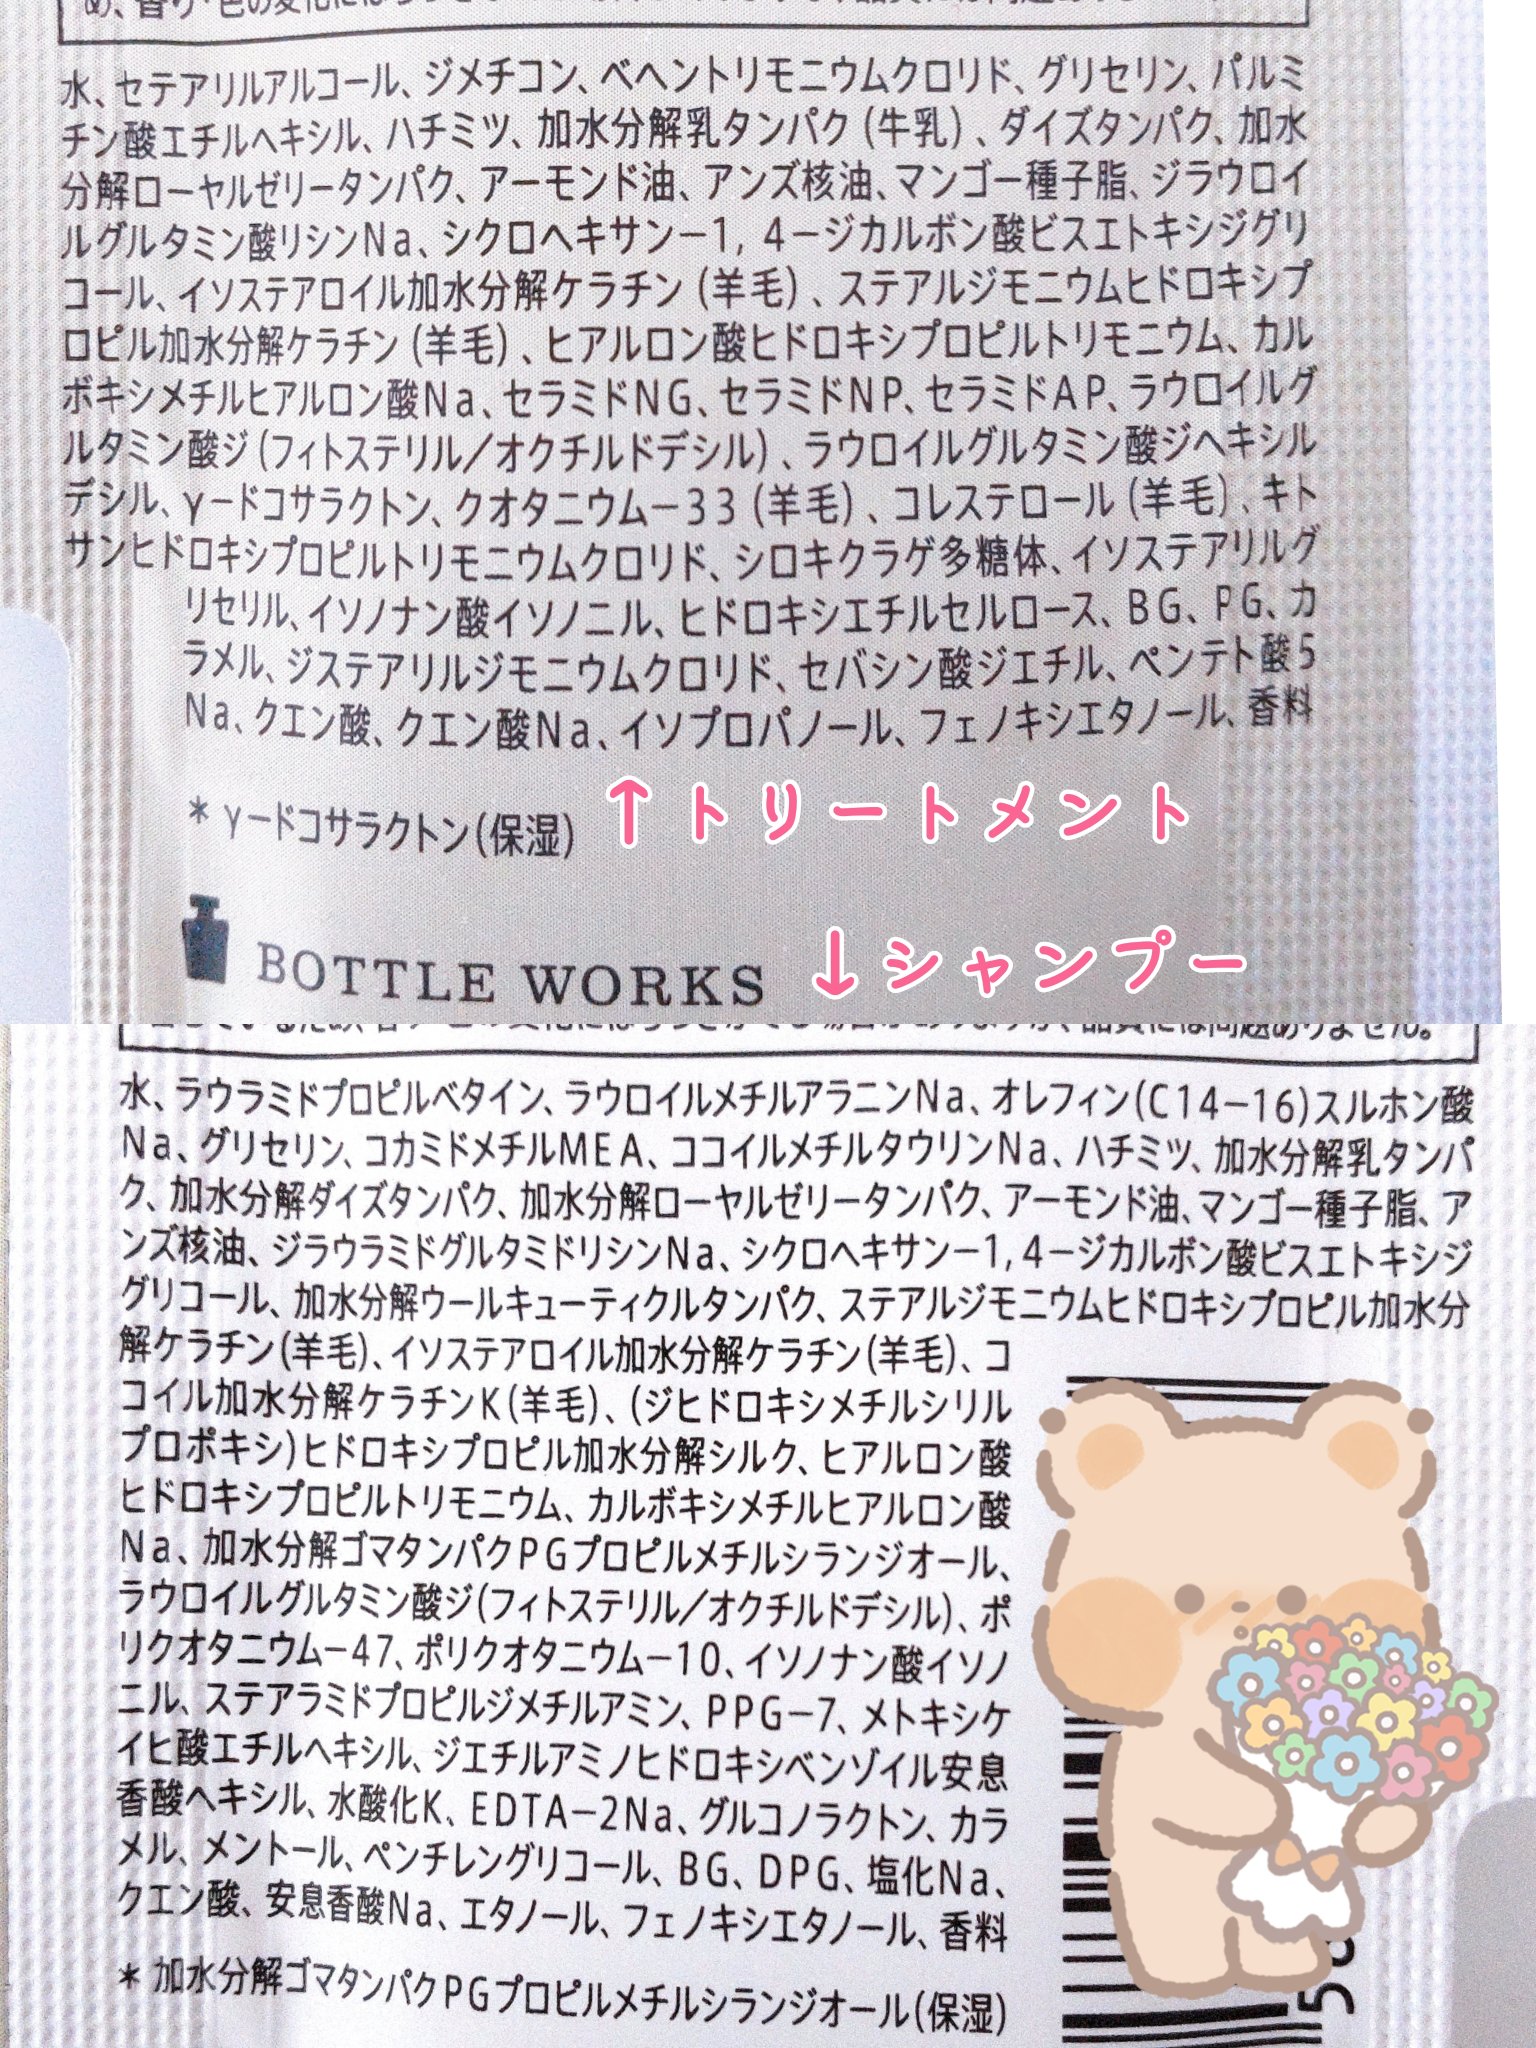 水、セテアリルアルコール、ジメチコン、ベヘントリモニウムクロリド、グリセリン、パルミ
チン酸エチルヘキシル、ハチミツ、加水分解乳タンパク(牛乳)、ダイズタンパク、加水
分解ローヤルゼリータンパク、アーモンド油、アンズ核油、マンゴー種子脂、ジラウロイ
ルグルタミン酸リシンNa、シクロヘキサン－1, 4－ジカルボン酸ビスエトキシジグリ
コール、イソステアロイル加水分解ケラチン(羊毛)、ステアルジモニウムヒドロキシプ
ロピル加水分解ケラチン(羊毛)、ヒアルロン酸ヒドロキシプロピルトリモニウム、カル
ボキシメチルヒアルロン酸Na、セラミドNG、セラミドNP、セラミドAP、ラウロイルグ
ルタミン酸ジ(フィトステリル／オクチルドデシル)、ラウロイルグルタミン酸ジヘキシル
デシル、γ－ドコサラクトン、クオタニウム－33(羊毛)、コレステロール(羊毛)、キト
サンヒドロキシプロピルトリモニウムクロリド、シロキクラゲ多糖体、イソステアリルグ
リセリル、イソノナン酸イソノニル、ヒドロキシエチルセルロース、BG、PG、カ
ラメル、ジステアリルジモニウムクロリド、セバシン酸ジエチル、ペンテト酸5
Na、クエン酸、クエン酸Na、イソプロパノール、フェノキシエタノール、香料
＊γ－ドコサラクトン(保湿)
↑トリートメント
BOTTLE WORKS
↓シャンプー
水、ラウラミドプロピルベタイン、ラウロイルメチルアラニンNa、オレフィン(C14－16)スルホン酸
Na、グリセリン、コカミドメチルMEA、ココイルメチルタウリンNa、ハチミツ、加水分解乳タンパ
ク、加水分解ダイズタンパク、加水分解ローヤルゼリータンパク、アーモンド油、マンゴー種子脂、ア
ンズ核油、ジラウラミドグルタミドリシンNa、シクロヘキサン－1, 4－ジカルボン酸ビスエトキシジ
グリコール、加水分解ウールキューティクルタンパク、ステアルジモニウムヒドロキシプロピル加水分
解ケラチン(羊毛)、イソステアロイル加水分解ケラチン(羊毛)、コ
コイル加水分解ケラチンK(羊毛)、(ジヒドロキシメチルシリル
プロポキシ)ヒドロキシプロピル加水分解シルク、ヒアルロン酸
ヒドロキシプロピルトリモニウム、カルボキシメチルヒアルロン酸
Na、加水分解ゴマタンパクPGプロピルメチルシランジオール、
ラウロイルグルタミン酸ジ(フィトステリル／オクチルドデシル)、ポ
リクオタニウム－47、ポリクオタニウム－10、イソノナン酸イソノ
ニル、ステアラミドプロピルジメチルアミン、PPG－7、メトキシケ
イヒ酸エチルヘキシル、ジエチルアミノヒドロキシベンゾイル安息
香酸ヘキシル、水酸化K、EDTA－2Na、グルコノラクトン、カラ
メル、メントール、ペンチレングリコール、BG、DPG、塩化Na、
クエン酸、安息香酸Na、エタノール、フェノキシエタノール、香料
＊加水分解ゴマタンパクPGプロピルメチルシランジオール(保湿)